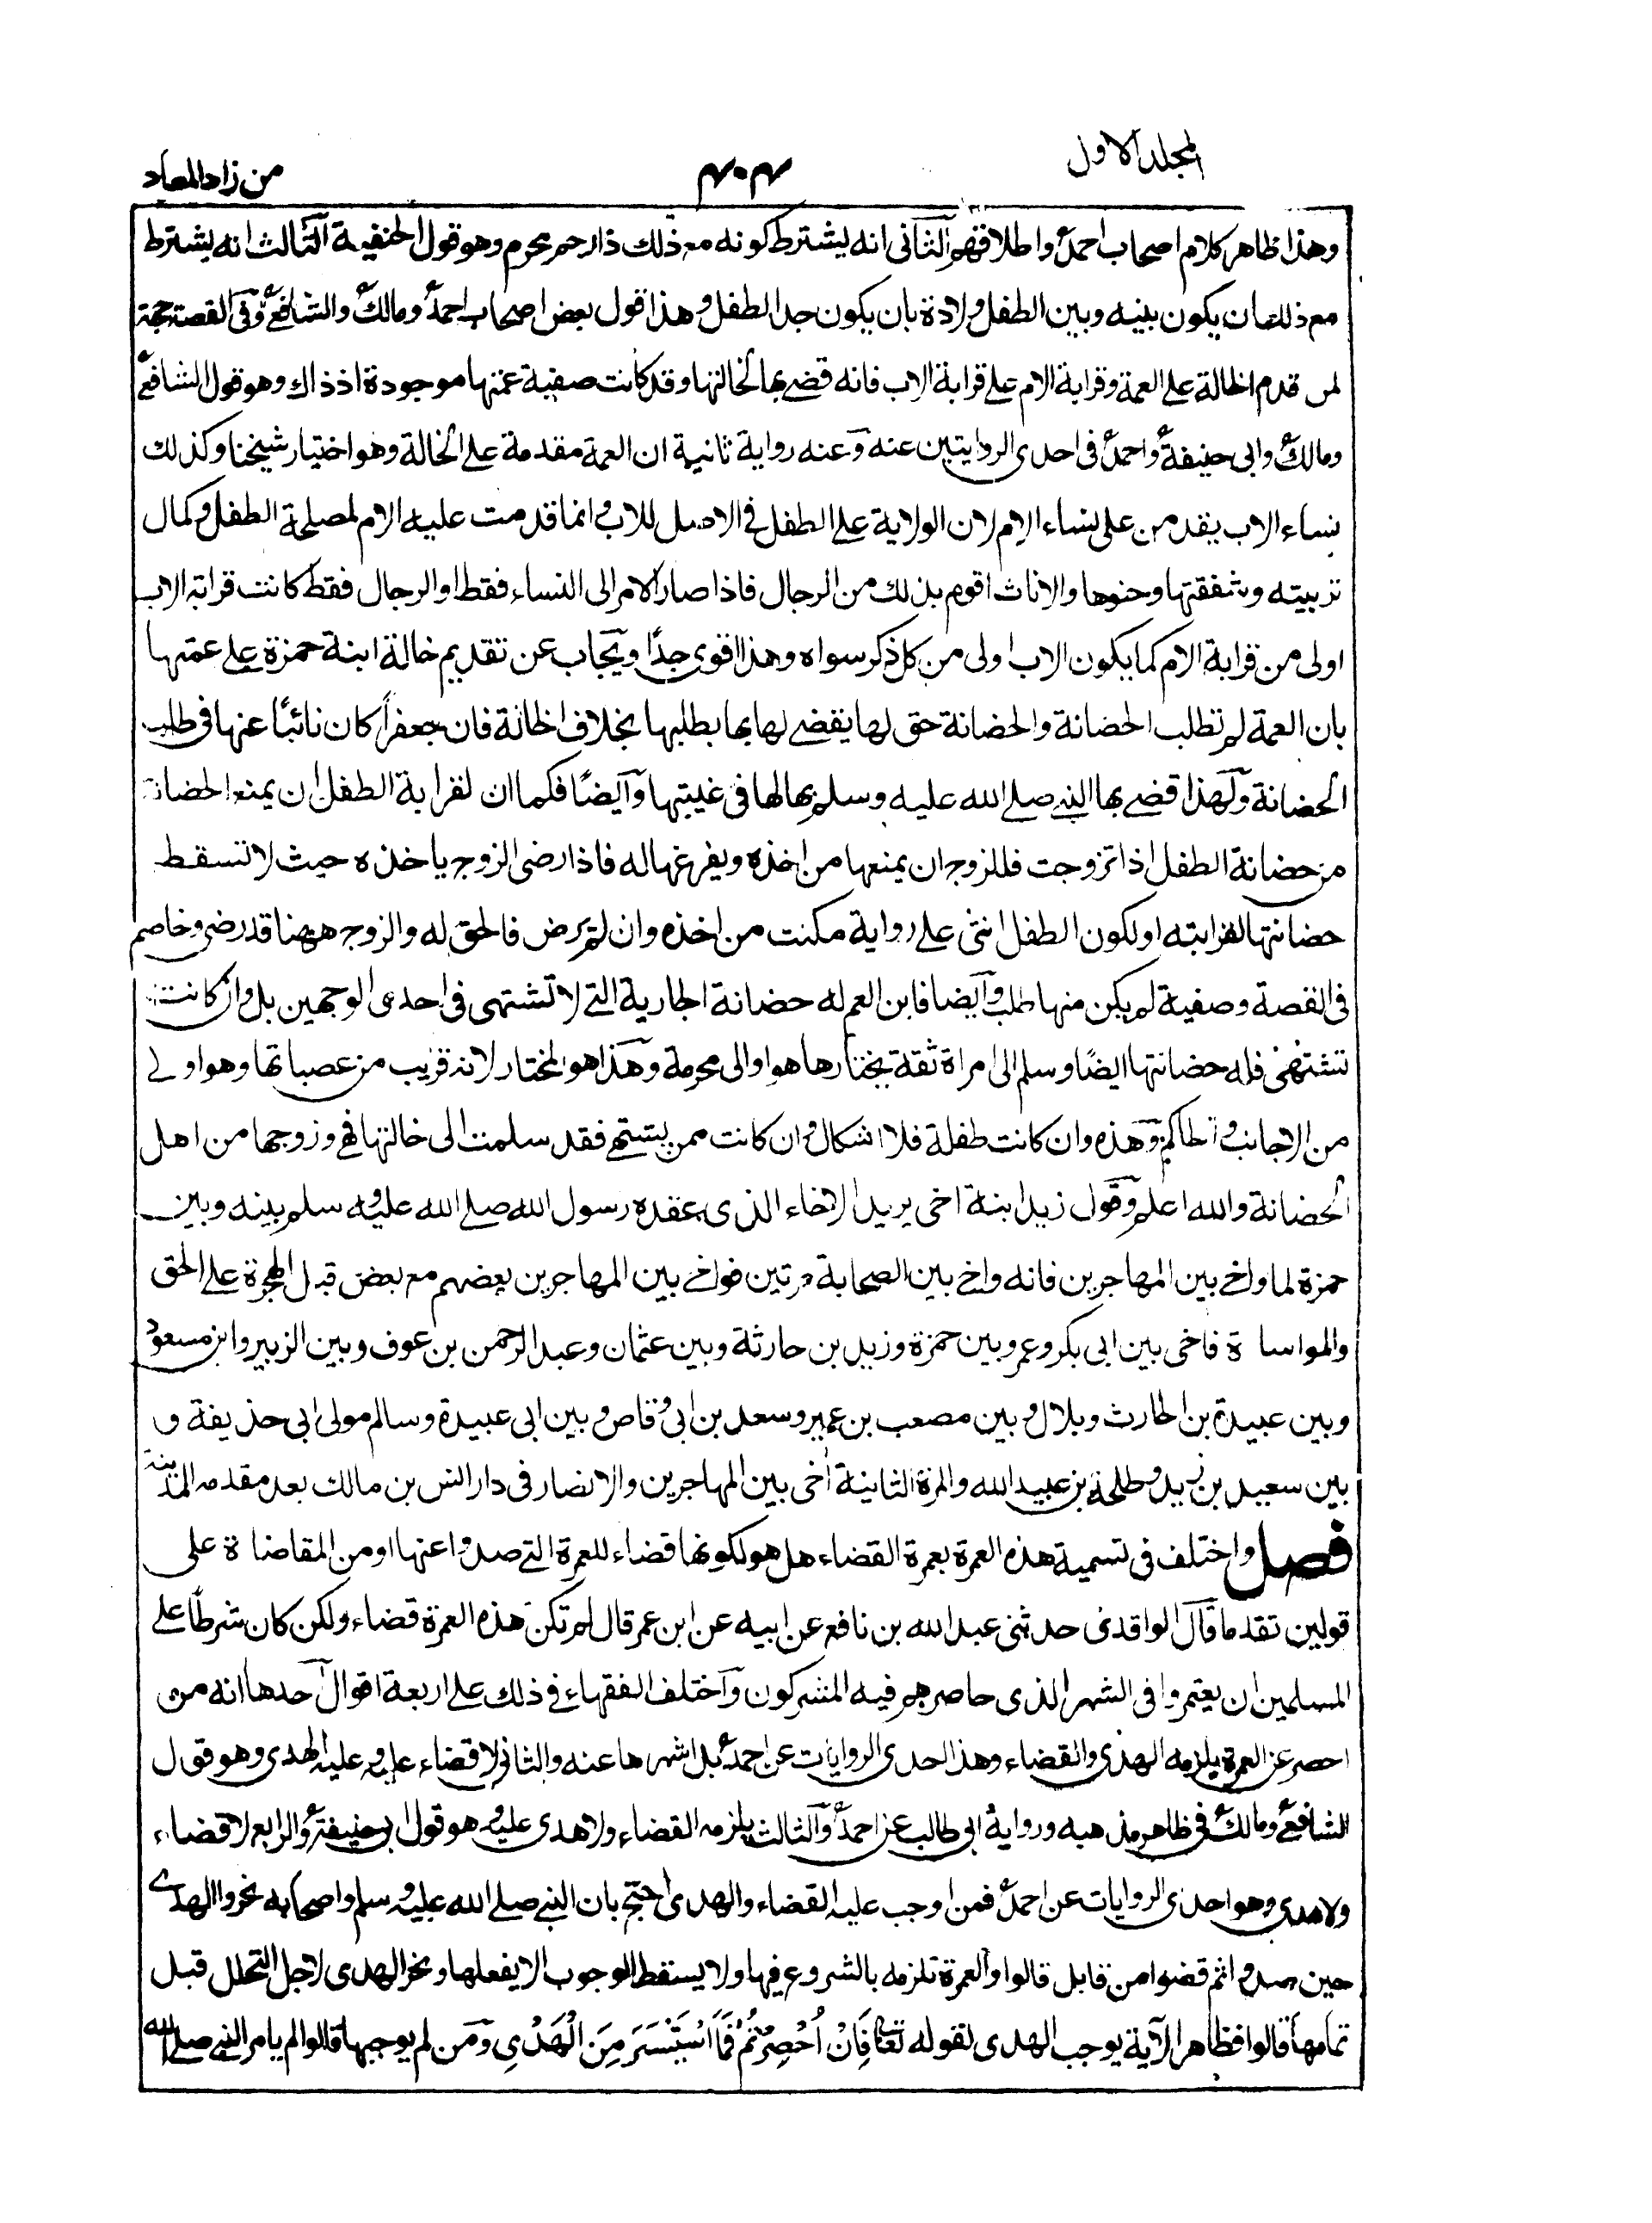 المجلد الاول
۴۰۴
من زاد المعاد
وهذا ظاهر كلام اصحاب احمد واطلاقهم الثانى انه يشترط كونه مع ذلك ذا رحم محرم وهو قول الحنفية الثالث انه يشترط
مع ذلك ان يكون بينه وبين الطفل ولادة بان يكون جد الطفل وهذا قول بعض اصحاب احمد ومالك والشافعى وفى القصة حجة
لمن قدم الخالة على العمة وقرابة الام على قرابة الاب فانه قضى بها لخالتها وقد كانت صفية عمتها موجودة اذ ذاك وهو قول الشافعى
ومالك وابى حنيفة واحمد فى احدى الروايتين عنه وعنه رواية ثانية ان العمة مقدمة على الخالة وهو اختيار شيخنا وكذلك
نساء الاب يقدمن على نساء الام لان الولاية على الطفل فى الاصل للاب وانما قدمت عليه الام لمصلحة الطفل وكمال
تربيته وشفقتها وحنوها والاناث اقوم بذلك من الرجال فاذا صار الامر الى النساء فقط او الرجال فقط كانت قرابة الاب
اولى من قرابة الام كما يكون الاب اولى من كل ذكر سواه وهذا اقوى جدًا ويجاب عن تقديم خالة ابنة حمزة على عمتها
بان العمة لم تطلب الحضانة والحضانة حق لها يقضى لها بها بطلبها بخلاف الخالة فان جعفراً كان نائبًا عنها فى طلب
الحضانة ولهذا قضى بها النبى صلى الله عليه وسلم بها لها فى غيبتها وايضًا فكما ان لقرابة الطفل ان يمنع الحضانة
من حضانة الطفل اذا تزوجت فللزوج ان يمنعها من اخذه ويفرغها له فاذا رضى الزوج ياخذه حيث لا تسقط
حضانتها لقرابته او لكون الطفل انثى على رواية مكنت من اخذه وان لم يرض فالحق له والزوج ههنا قد رضى وخاصم
فى القصة وصفية لم يكن منها طلب وايضا فابن العم له حضانة الجارية التى لا تشتهى فى احدى الوجهين بل وان كانت
تشتهى فله حضانتها ايضًا وسلم الى امراة ثقة يختارها هو او الى محرمة وهذا هو المختار لانه قريب من عصباتها وهو اولى
من الاجانب والحاكم وهذه وان كانت طفلة فلا اشكال وان كانت ممن يشتهى فقد سلمت الى خالتها فهى وزوجها من اهل
الحضانة والله اعلم وقول زيد ابنة اخى يريد الاخاء الذى عقده رسول الله صلى الله عليه وسلم بينه وبين
حمزة لما واخى بين المهاجرين فانه واخى بين الصحابة مرتين فواخى بين المهاجرين بعضهم مع بعض قبل الهجرة على الحق
والمواساة فاخى بين ابى بكر وعمر وبين حمزة وزيد بن حارثة وبين عثمان وعبد الرحمن بن عوف وبين الزبير وابن مسعود
وبين عبيدة بن الحارث وبلال وبين مصعب بن عمير وسعد بن ابى وقاص وبين ابى عبيدة وسالم مولى ابى حذيفة و
بين سعيد بن زيد وطلحة بن عبيد الله والمرة الثانية اخى بين المهاجرين والانصار فى دار انس بن مالك بعد مقدمه المدينة
فصل واختلف فى تسمية هذه العمرة بعمرة القضاء هل هو لكونها قضاء للعمرة التى صدوا عنها او من المقاضاة على
قولين تقدما قال الواقدى حدثنى عبد الله بن نافع عن ابيه عن ابن عمر قال لم تكن هذه العمرة قضاء ولكن كان شرطًا على
المسلمين ان يعتمروا فى الشهر الذى حاصرهم فيه المشركون واختلف الفقهاء فى ذلك على اربعة اقوال احدها انه من
احصر عن العمرة يلزمه الهدى والقضاء وهذا احدى الروايات عن احمد بل اشهرها عنه والثانى لا قضاء عليه وعليه الهدى وهو قول
الشافعى ومالك فى ظاهر مذهبه ورواية ابى طالب عن احمد والثالث يلزمه القضاء ولا هدى عليه وهو قول ابى حنيفة والرابع لا قضاء
ولا هدى وهو احدى الروايات عن احمد فمن اوجب عليه القضاء والهدى احتج بان النبى صلى الله عليه وسلم واصحابه نحروا الهدى
حين صدوا ثم قضوا من قابل قالوا والعمرة تلزمه بالشروع فيها ولا يسقط الوجوب الا بفعلها ونحر الهدى لاجل التحلل قبل
تمامها قالوا فظاهر الآية يوجب الهدى لقوله تعالى فَاِنْ اُحْصِرْتُمْ فَمَا اسْتَيْسَرَ مِنَ الْهَدْىِ ومن لم يوجبها قالوا لم يامر النبى صلى الله